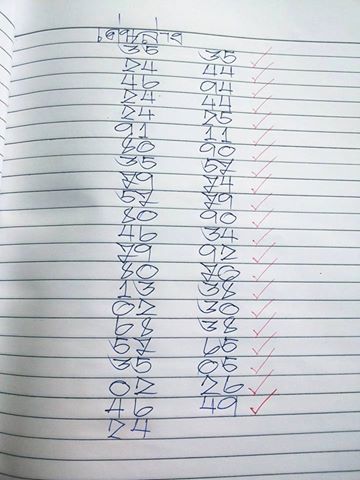 35 35
24 44
46 94
24 44
24 25
91 11
80 90
35 57
79 74
57 79
80 90
46 34
79 92
80 76
13 38
02 30
68 38
57 65
35 05
02 26
46 49
24